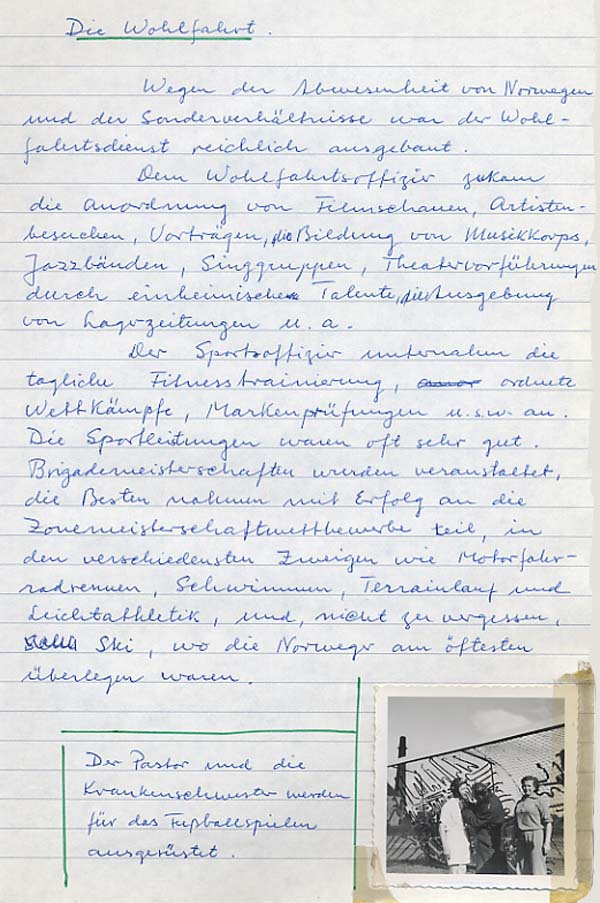 Die Wohlfahrt.
Wegen der Abwesenheit von Norwegen
und der Sonderverhältnisse war der Wohl-
fahrtsdienst reichlich ausgebaut.
Dem Wohlfahrtsoffizier zukam
die Anordnung von Filmschauen, Artisten-
besuchen, Vorträgen, die Bildung von Musikkorps,
Jazzbänden, Singgruppen, Theatervorführungen
durch einheimische Talente, die Ausgebung
von Lagerzeitungen u. a.
Der Sportsoffizier unternahm die
tagliche Fitnesstrainierung, ordnete
Wettkämpfe, Markenprüfungen u.s.w. an.
Die Sportleistungen waren oft sehr gut.
Brigademeisterschaften wurden veranstaltet,
die Besten nahmen mit Erfolg an die
Zonemeisterschaftwettbewerbe teil, in
den verschiedensten Zweigen wie Motorfahr-
radrennen, Schwimmen, Terrainlauf und
Leichtathletik, und, nicht zu vergessen,
Ski, wo die Norweger am öftesten
überlegen waren.
Der Pastor und die
Krankenschwester werden
für das Fußballspielen
ausgerüstet.